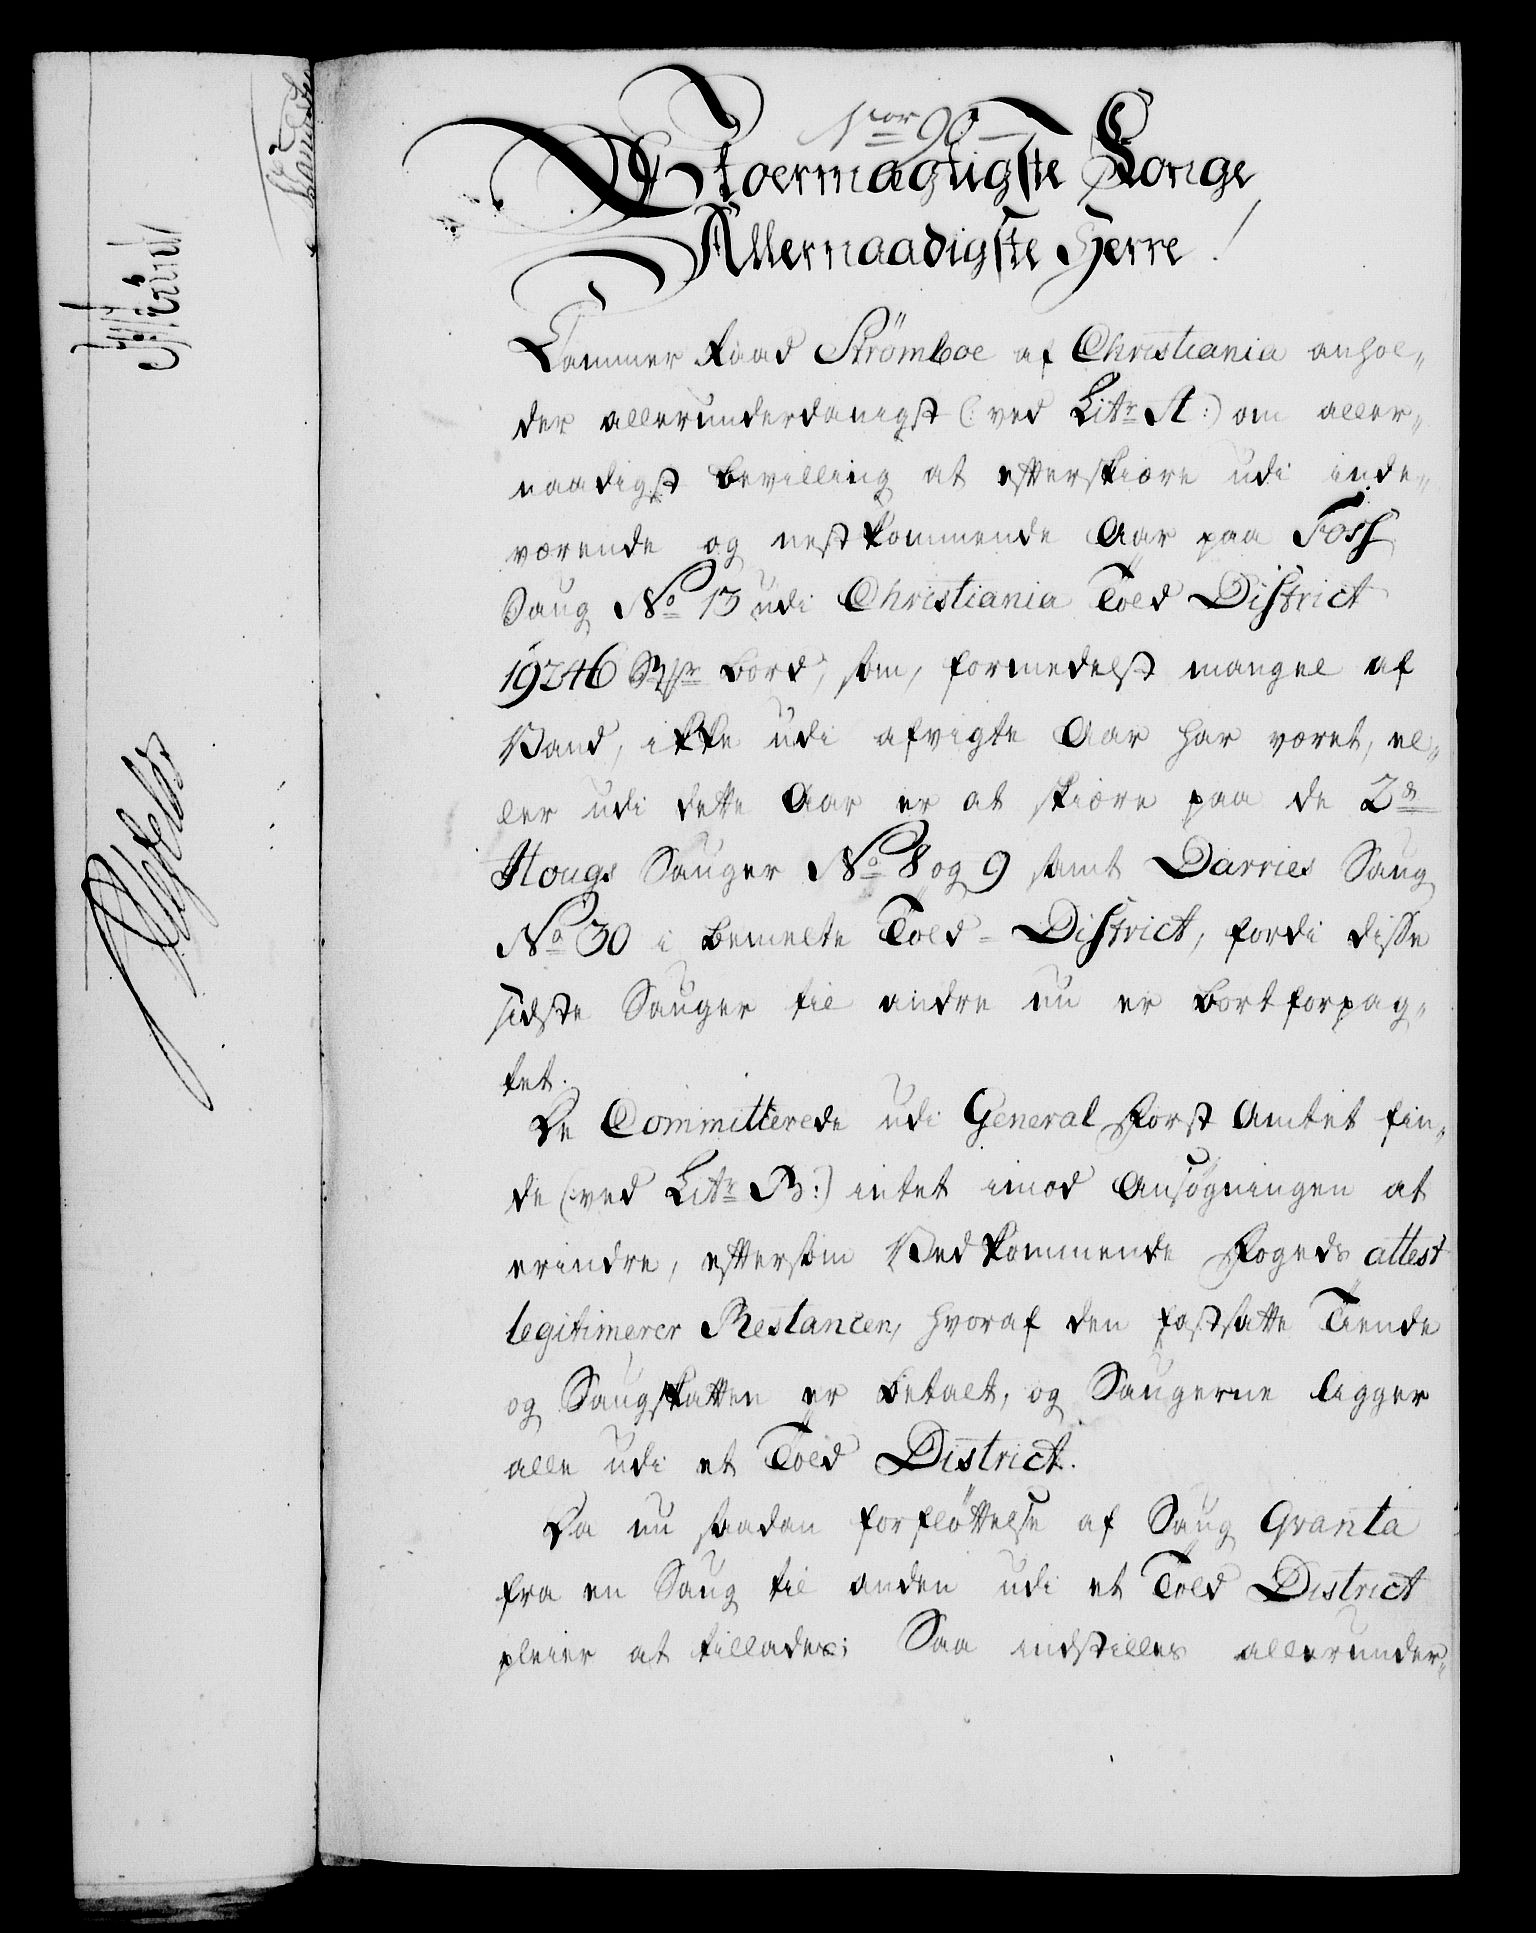 Nor 90
Stoermægtigste Konge
Allernaadigste Herre!
Cammer Raad Strömboe af Christiania anhol„
der allerunderdanigst (: ved Litr A:) om aller„
naadigst bevilling at efterskiære udi inde„
værende og nestkommende Aar paa Foss
Saug No 13 udi Christiania Told District
19246 bord, som, formedelst mangel af
Vand, ikke udi afvigte Aar har været, el„
ler udi dette Aar er at skiære paa de 2de
Hougs Sauger No 8 og 9 samt Darries Saug
No 30 i bemelte Told-District, fordi disse
sidste Sauger til andre nu er bortforpag„
tet.
De Committerede udi General Forst Amtet fin„
de (: ved Litr B:) intet imod Ansøgningen at
erindre, eftersom Vedkommende Fogeds attest
legitimerer Restancen, hvoraf den fastsatte Tiende
og Saugskatten er betalt, og Saugerne ligger
alle udi et Told District.
Da nu saadan forfløttelse af Saug Qvanta
fra en Saug til anden udi et Told District
pleier at tillades; Saa indstilles allerunder„